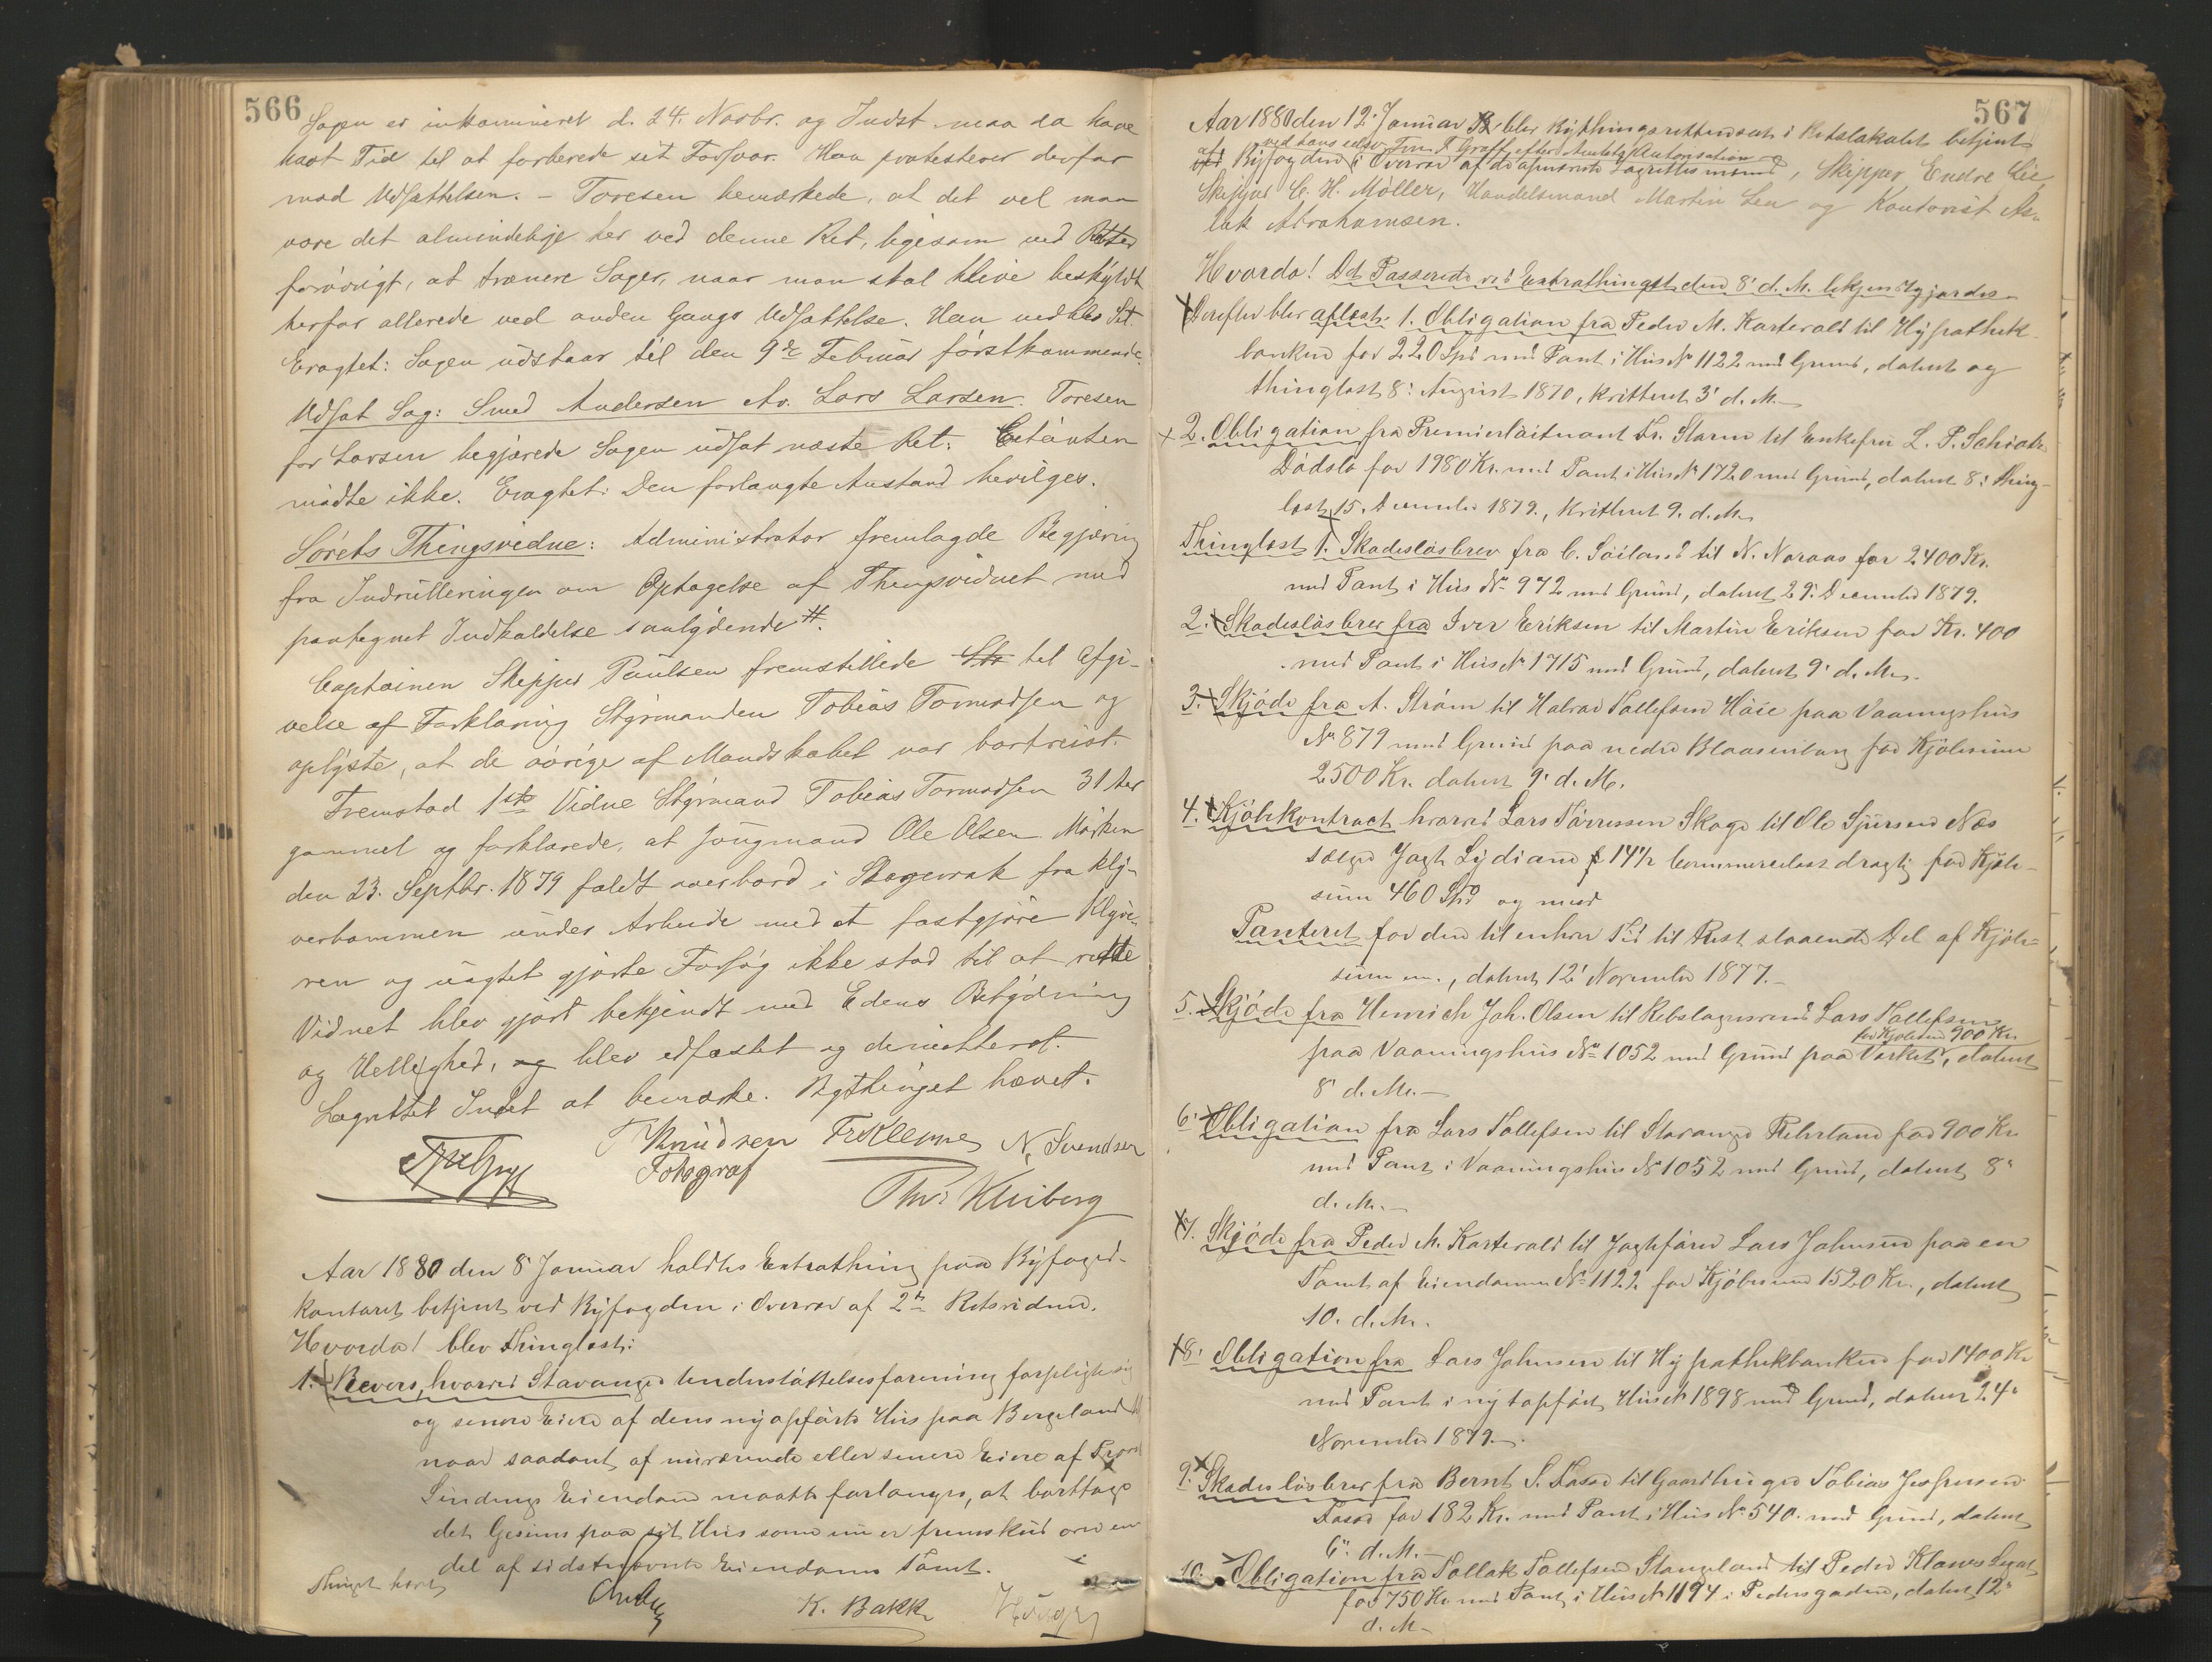 566
Sagen er inkamineret d. 24. Novbr. og Indst. maa da have
havt Tid til at forberede sit Forsvar. Han protesterer derfor
mod Udsættelsen. – Toresen bemærkede, at det vel maa
være det almindelige her ved denne Ret, ligesom ved Retter
forøvrigt, at trænere Sager, naar man skal blive beskyldt
herfor allerede ved anden Gangs Udsættelse. Han nedlbs Sit.
Eragtet: Sagen udstaar til den 9de Februar førstkommende.
Udsat Sag: Smed Andersen Av. Lars Larsen. Toresen
for Larsen begjærede Sagen udsat næste Ret. Citanten
mødte ikke. Eragtet: Den forlangte Anstand bevilges.
Sørets Thingsvidne: Administrator fremlagde Begjæring
fra Indrulleringen om Optagelse af Thingsvidnet med
paategnet Indkaldelse saalydende #.
Captainen Skipper Paulsen fremstillede til Afgi-
velse af Forklaring Styrmanden Tobias Tormodsen og
oplyste, at de øvrige af Mandskabet var bortreist.
Fremstod 1ste Vidne Styrmand Tobias Tormodsen 31 Aar
gammel og forklarede, at Jungmand Ole Olsen Mørken
den 23. Septbr. 1879 faldt overbord i Skagerak fra Kly-
verbommen under Arbeide med at fastgjøre Klyve-
ren og uagtet gjorte Forsøg ikke stod til at redde
Vidnet blev gjort bekjendt med Edens Betydning
og Hellighed, og blev edfæstet og demitteret.
Lagrettet Intet at bemærke. Bythinget hævet.
T Knudsen Fr Klemme N. Svendsen
Fotograf
Thv. Kleiberg
Aar 1880 den 8' Januar holdtes Extrathing paa Byfoged-
kontoret betjent ved Byfogden i Overvær af 2de Retsvidner.
Hvorda! blev thinglæst:
1. Revers, hvorved Stavanger Understøttelsesforening forpligter sig
og senere Eiere af dens ny opførte Hus paa Bergeland
naar saadant af nuværende eller senere Eiere af
Sindings Eiendom maatte forlanges, at borttage
det Gesims paa sit Hus som nu er fremskud over en
del af sidstnævnte Eiendoms Tomt.
Thinget hævet
K. Bakke
567
Aar 1880 den 12' Januar blev Bythingsretten sat i Retslokalet betjent
ved hans edsv. Fm. J. Graff efter Amtets Autorisation
af Byfogden i Overvær af de opnævnte Lagrettesmænd, Skipper Endre Lie,
Skipper C. H. Møller, Handelsmand Martin Lea og Kontorist As-
lak Abrahamsen.
Hvorda! Det Passerede ved Extrathinget den 8' d. M. bekjendtgjordes.
Derefter blev aflæst: 1. Obligation fra Peder M. Karterald til Hypothek-
banken for 220 Spd med Pant i Hus No 1122 med Grund, dateret og
thinglæst 8' August 1870, kvitteret 3' d. M.
2. Obligation fra Premierløitnant Fr. Storm til Enkefru L. P. Schiøtz
Dødsbo for 1980 Kr. med Pant i Hus No 1720 med Grund, dateret 8' thing-
læst 15. December 1879., kvitteret 9. d. M.
Thinglæst 1. Skadesløsbrev fra C. Soiland til N. Noraas for 2400 Kr.
med Pant i Hus No 972 med Grund, dateret 29' December 1879.
2. Skadesløsbrev fra Iver Eriksen til Martin Eriksen for Kr. 400
med Pant i Hus No 1715 med Grund, dateret 9' d. M.
3. Skjøde fra A. Strøm til Halvor Tollefsen Høie paa Vaaningshus
No 879 med Grund paa nedre Blaasenborg for Kjøbesum
2500 Kr. dateret 9' d. M.
4. Kjøbekontract hvorved Lars Tørressen Skage til Ole Sjursen Næs
sælger Jagt Lydiane 14 1/2 Commercelæst drægtig for Kjøbe-
sum 460 Spd og med
Panteret for den til enhver Tid til Rest staaende Del af Kjøbe-
summen., dateret 12' November 1877.
5. Skjøde fra Henrich Joh. Olsen til Rebslagersvend Lars Tollefsen
for Kjøbesum 900 Kr.
paa Vaaningshus No 1052 med Grund paa Verket, dateret
8' d. M.
6. Obligation fra Lars Tollefsen til Stavanger for 900 Kr
med Pant i Vaaningshus No 1052 med Grund, dateret 8'
d. M.
7. Skjøde fra Peder M. Karterald til Jagtfører Lars Johnsen paa en
Tomt af Eiendommen No 1122 for Kjøbesum 1520 Kr., dateret
10. d. M.
8. Obligation fra Lars Johnsen til Hypothekbanken for 1400 Kr
med Pant i ny topført Hus No 1898 med Grund, dateret 24'
November 1879.
9. Skadesløsbrev fra Bernt S. Tasso til Gaardbruger Tobias Jespersen
Tasso for 182 Kr. med Pant i Hus No 540. med Grund, dateret
6' d. M.
10. Obligation fra Tollak Tollefsen Stangeland til Peder Klows Legat
for 750 Kr. med Pant i Hus No 1194 i Pedersgaden, dateret 12'
d. M.